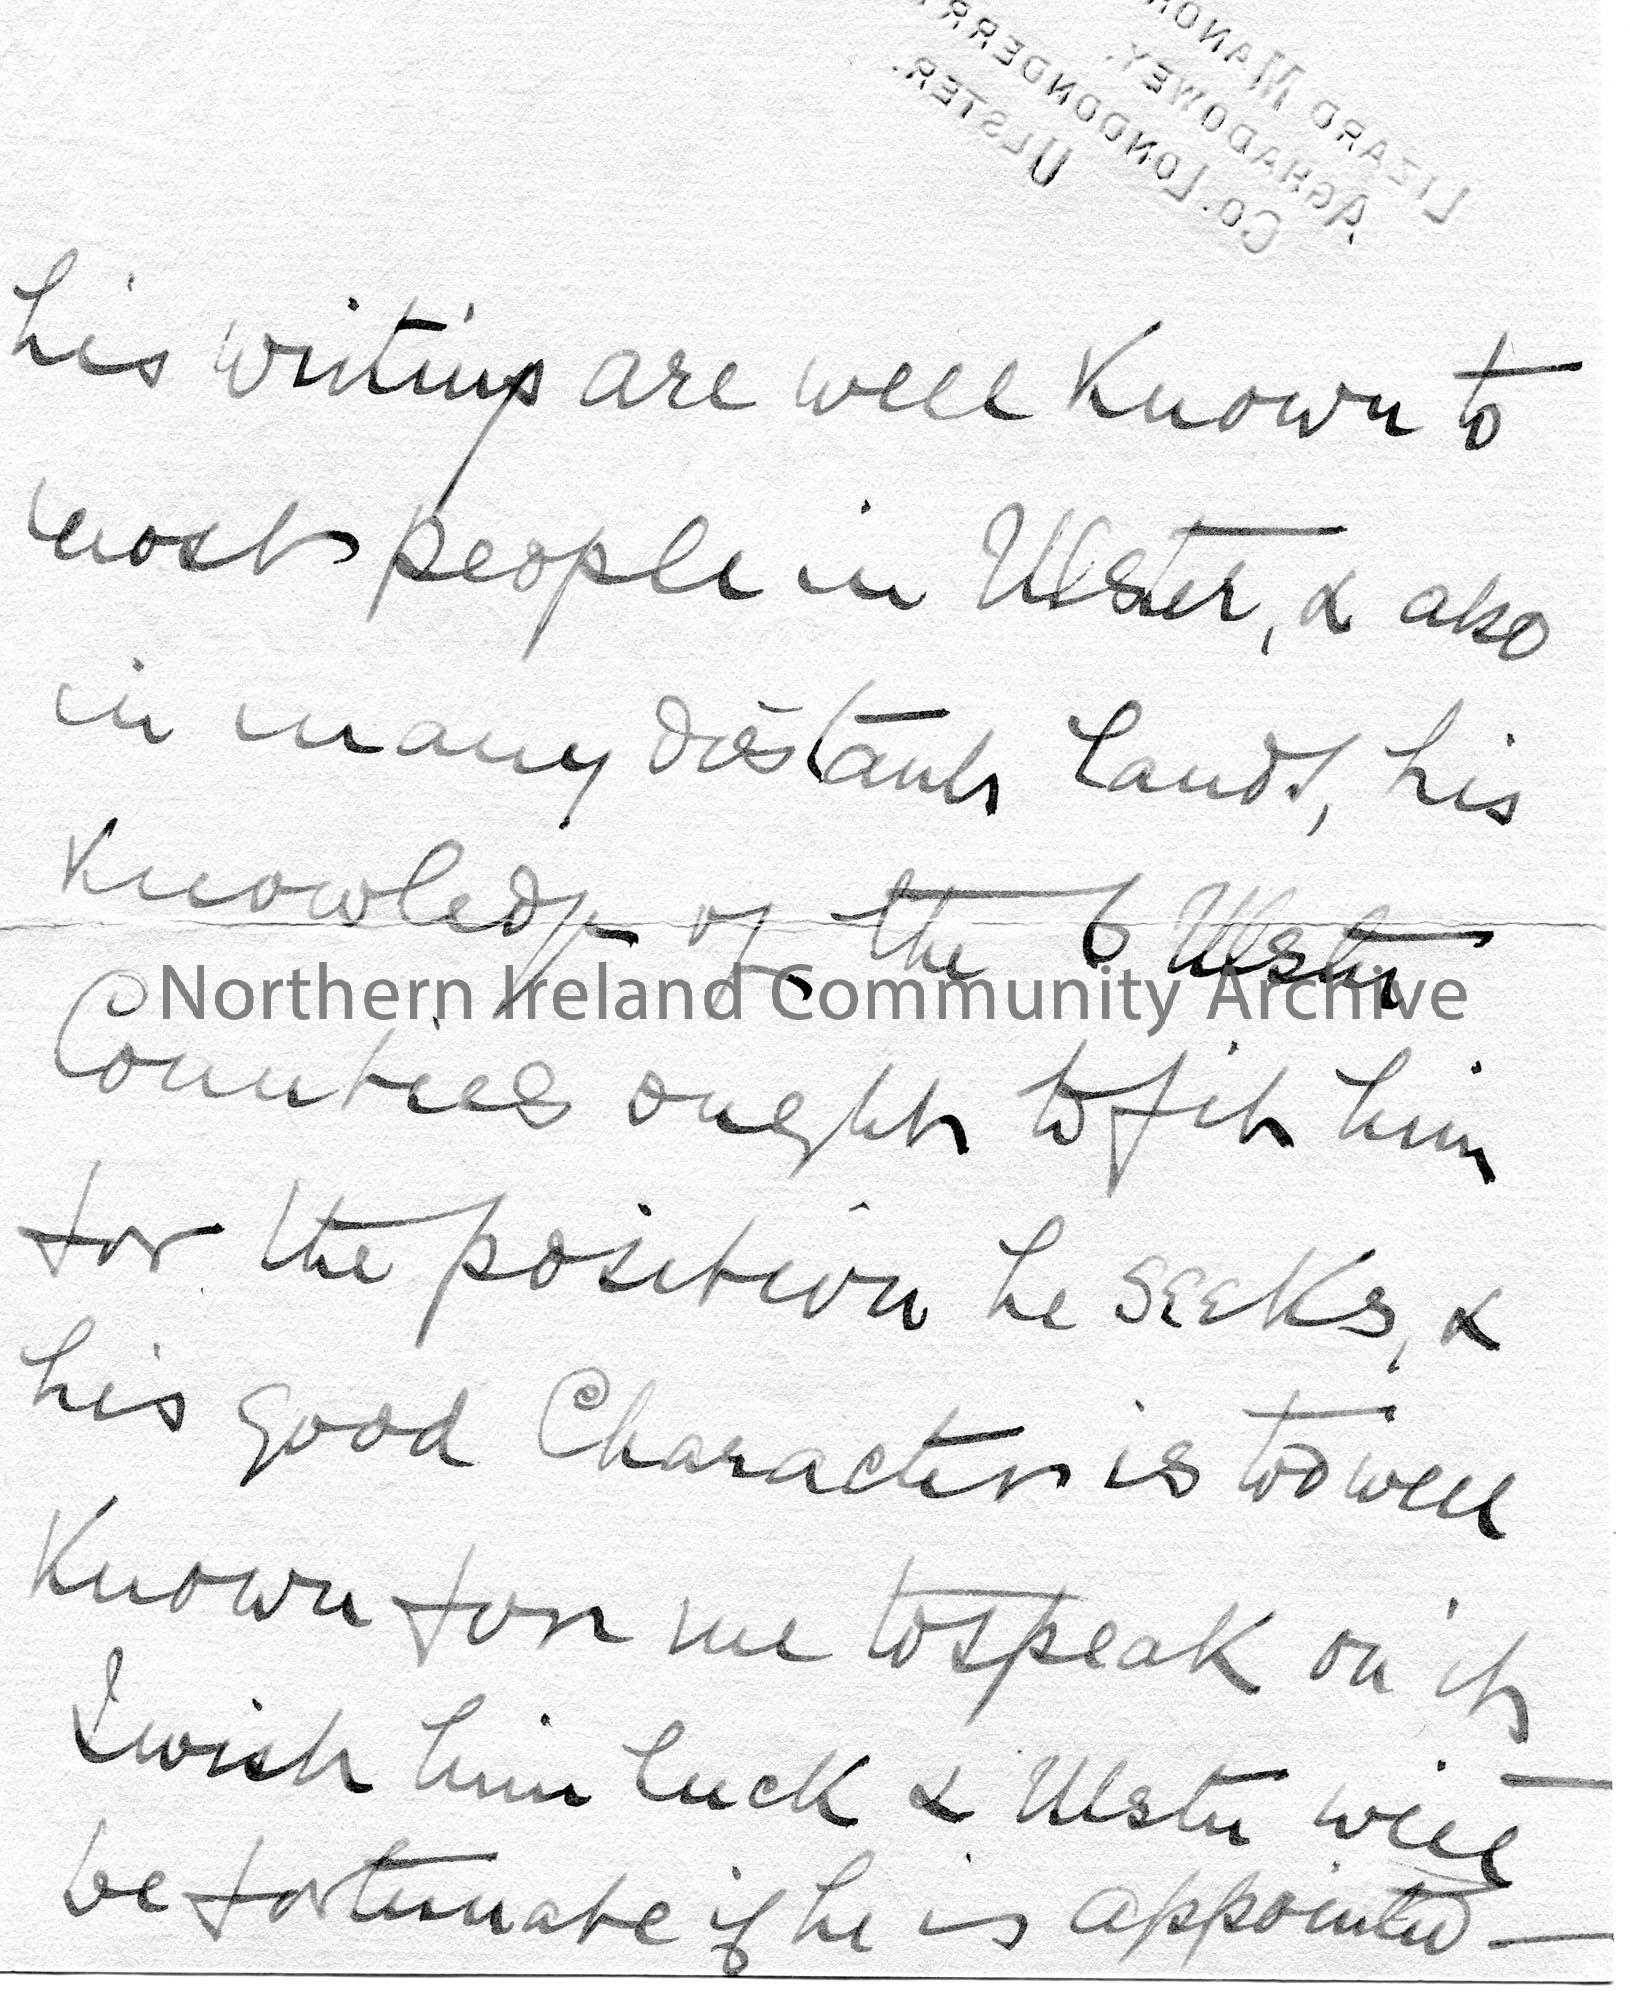 LIZARD MANOR
AGHADOWEY,
CO. LONDONDERR
ULSTER.
his writings are well known to
most people in Ulster, & also
in many distant lands, his
knowledge of the 6 Ulster
Northern Ireland Community Archive
Counties ought to fit him
for the position he seeks, &
his good Character is too well
known for me to speak on it
I wish him luck & Ulster will
be fortunate if he is appointed —